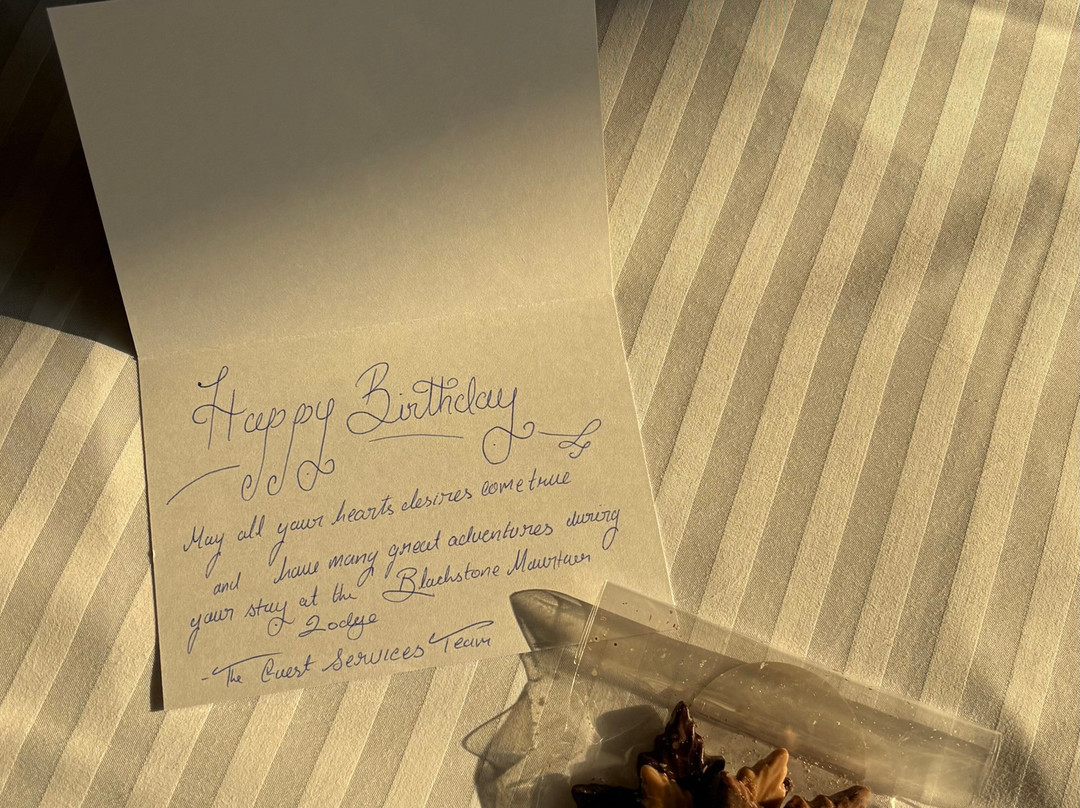 Happy Birthday
May all your hearts desires come true
and have many great adventures during
your stay at the Blackstone Mountain
Lodge
-The Guest Services Team